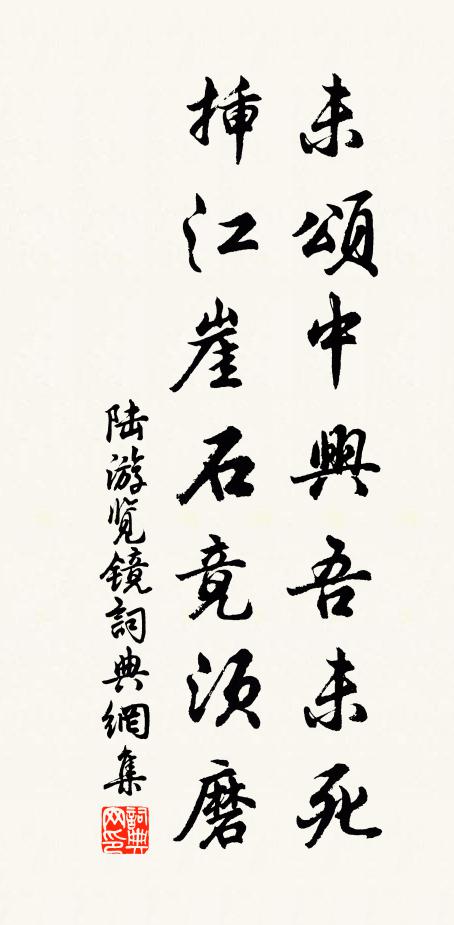 未頌中興吾未死
插江崖石竟須磨
陆游覽镜詞典網集
詞典网印